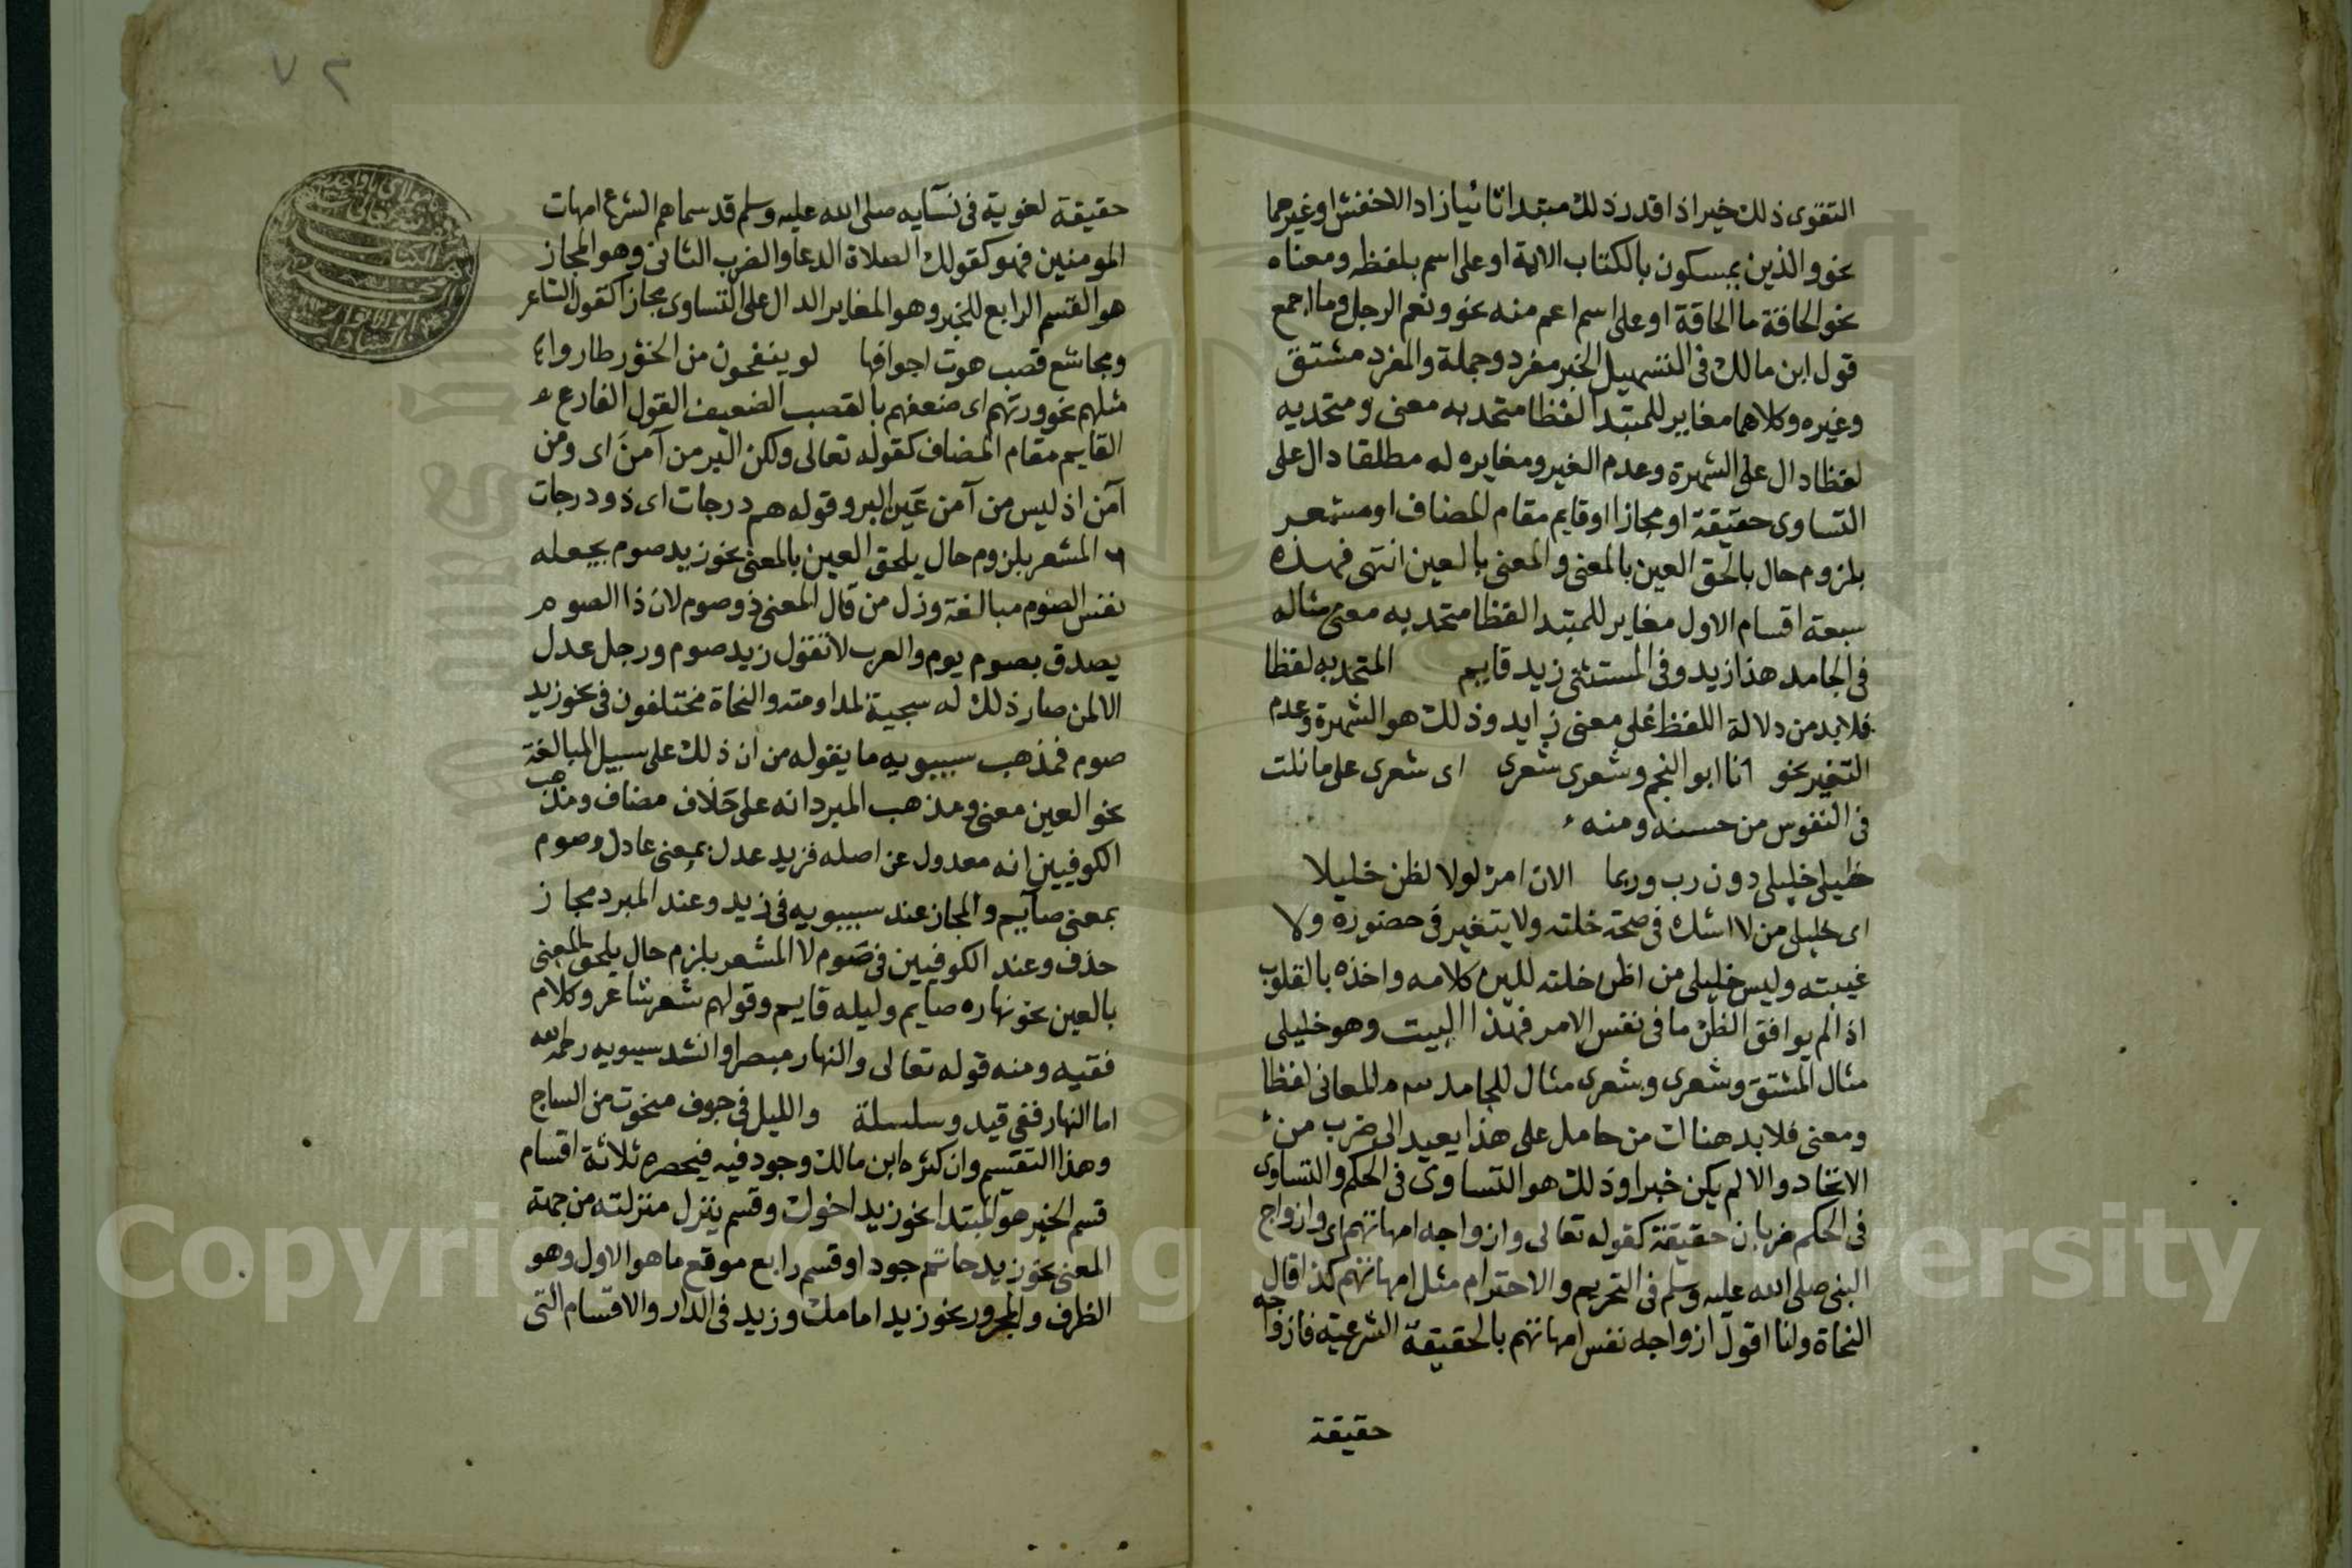 التقوى ذلك خير اذا قدر ذلك مبتدا ثانيا زاد الاخفش او غيرهما
نحو والذين يمسكون بالكتاب الاية او على اسم بلفظه ومعناه
نحو الحاقة ما الحاقة او على اسم اعم منه نحو ونعم الرجل وما اجمع
قول ابن مالك فى التسهيل الخبر مفرد وجملة والمفرد مشتق
وغيره وكلاهما مغاير للمبتدا لفظا متحد به معنى ومتحد به
لفظا دال على الشهرة وعدم الغير ومغايره له مطلقا دال على
التساوى حقيقة او مجازا او قايم مقام المضاف او مشعر
بلزوم حال بالحق العين بالمعنى والمعنى بالعين انتهى فهذه
سبعة اقسام الاول مغاير للمبتدا لفظا متحد به معنى مثاله
فى الجامد هذا زيد وفى المستثنى زيد قايم المتحد به لفظا
فلابد من دلالة اللفظ على معنى زايد وذلك هو الشهرة وعدم
التغير نحو انا ابو النجم وشعرى شعرى اى شعرى على ما نلت
فى النفوس من حسنه ومنه
خليلى خليلى دون رب وربما الان امرؤ لولا لظن خليلا
اى خليلى من لا اشك فى صحة خلته ولا يتغير فى حضوره ولا
غيبته وليس خليلى من اظن خلته للين كلامه واخذه بالقلوب
اذ الم يوافق الظن ما فى نفس الامر فهذا البيت وهو خليلى
مثال المشتق وشعرى وشعرى مثال للجامد المعانى لفظا
ومعنى فلابد هناك من حامل على هذا يعيد الى ضرب من
الاتحاد والا لم يكن خبرا وذلك هو التساوى فى الحكم والتساوى
فى الحكم ضربان حقيقة كقوله تعالى وازواجه امهاتهم اى وازواج
النبى صلى الله عليه وسلم فى التحريم والاحترام مثل امهاتهم كذا قال
النحاة ولنا اقول ازواجه نفس امهاتهم بالحقيقة الشرعية فازواجه
حقيقة
٧٢
حقيقة لغوية فى نسايه صلى الله عليه وسلم قد سماهم الشرع امهات
المومنين فهو كقولك الصلاة الدعا والضرب الثانى وهو المجاز
هو القسم الرابع للخبر وهو المغاير الدال على التساوى مجازا كقول الشاعر
ومجاشع قصب هوت اجوافها لو ينفخون من الخؤر طاروا
مثلهم نحو ورتهم اى ضعفهم بالقصب الضعيف القول الفارع
القايم مقام المضاف كقوله تعالى ولكن البر من آمن اى ومن
آمن اذ ليس من آمن عين البر وقوله هم درجات اى ذو درجات
المشعر بلزوم حال يلحق العين بالمعنى نحو زيد صوم بجعله
نفس الصوم مبالغة وزل من قال المعنى ذو صوم لان ذا الصوم
يصدق بصوم يوم والعرب لا تقول زيد صوم ورجل عدل
الا لمن صار ذلك له سجية لمداومته والنحاة مختلفون فى نحو زيد
صوم فمذهب سيبويه ما يقوله من ان ذلك على سبيل المبالغة
نحو العين معنى ومذهب المبرد انه على خلاف مضاف ومذهب
الكوفيين انه معدول عن اصله فزيد عدل بمعنى عادل وصوم
بمعنى صايم والمجاز عند سيبويه فى زيد وعند المبرد مجاز
حذف وعند الكوفيين فى صوم لا المشعر بلزم حال يلحق المعنى
بالعين نحو نهاره صايم وليله قايم وقولهم شعر شاعر وكلام
فقيه ومنه قوله تعالى والنهار مبصرا وانشد سيبويه رحمه الله
اما النهار ففى قيد وسلسلة والليل فى جوف منحوت من الساج
وهذا التقسيم وان كثره ابن مالك وجود فيه فيحصره ثلاثة اقسام
قسم الخبر هو المبتدا نحو زيد اخوك وقسم ينزل منزلته من جهة
المعنى نحو زيد حاتم جودا وقسم رابع موقع ما هو الاول وهو
الظرف والمجرور نحو زيد امامك وزيد فى الدار والاقسام التى
Copyright © King Saud University